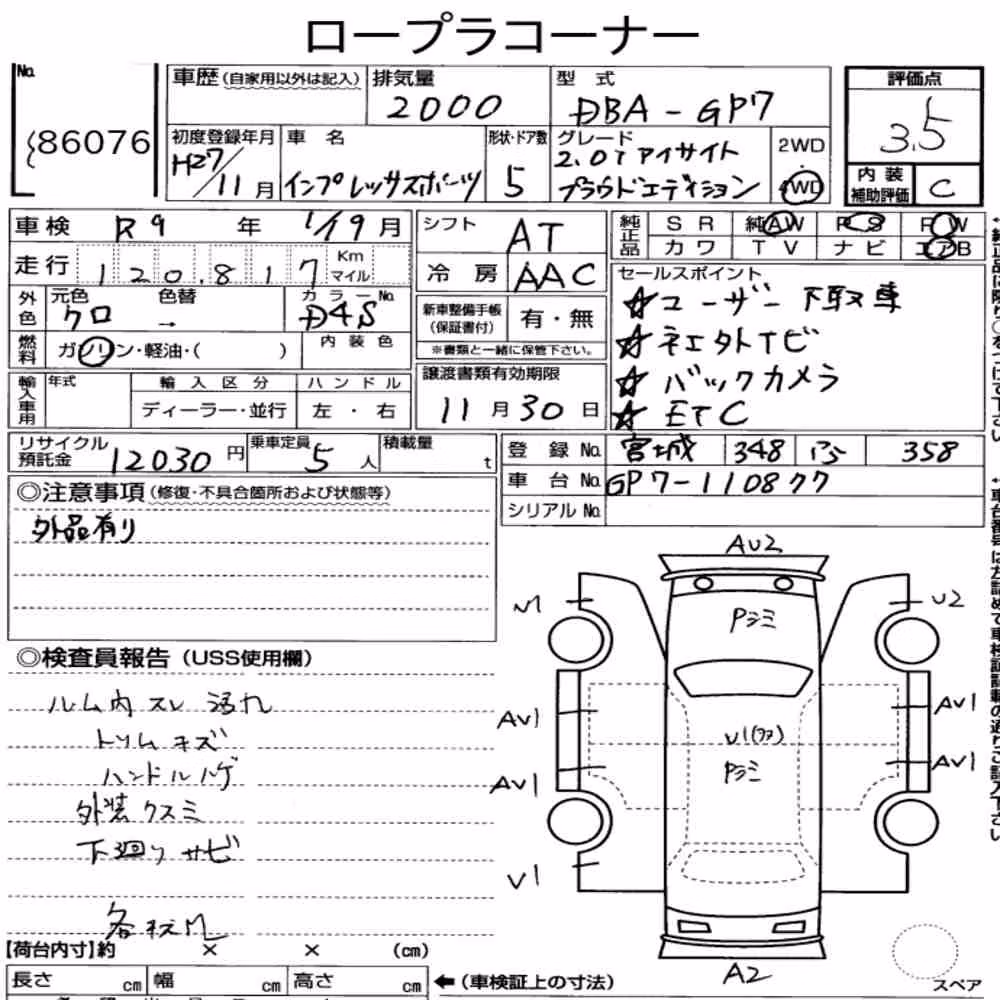 ロープラコーナー
No.
86076
車歴(自家用以外は記入)
排気量
2000
型 式
DBA-GP7
評価点
3.5
初度登録年月
H27/11月
車 名
インプレッサスポーツ
形状・ドア数
5
グレード
2.0i アイサイト
プラウドエディション
2WD
4WD
内装
補助評価
C
車検 R9 年 1/19月
シフト AT
純正品
SR 純AW PS PW
カワ TV ナビ エアB
走行 120.817 Km マイル
冷房 AAC
セールスポイント
☆ユーザー下取車
☆社外ナビ
☆バックカメラ
☆ETC
外色 元色 色替 カラーNo.
クロ → D4S
新車整備手帳
(保証書付)
有・無
※書類と一緒に保管下さい。
燃料 ガソリン・軽油・( )
内装色
輸入車用 年式 輸入区分 ハンドル
ディーラー・並行 左・右
譲渡書類有効期限
11月30日
リサイクル
預託金
12030円
乗車定員 5人
積載量 t
登録No. 宮城 348 358
車台No. GP7-110877
シリアルNo.
◎注意事項(修復・不具合箇所および状態等)
外品有り
◎検査員報告(USS使用欄)
ルーム内スレ 汚れ
トリムキズ
ハンドルハゲ
外装クスミ
下廻りサビ
各キズM
AU2
M
U2
Pラミ
AU1
AU1
U1(タテ)
Pラミ
AU1
AU1
U1
A2
スペア
【荷台内寸】約 × × (cm)
長さ cm 幅 cm 高さ cm
←(車検証上の寸法)